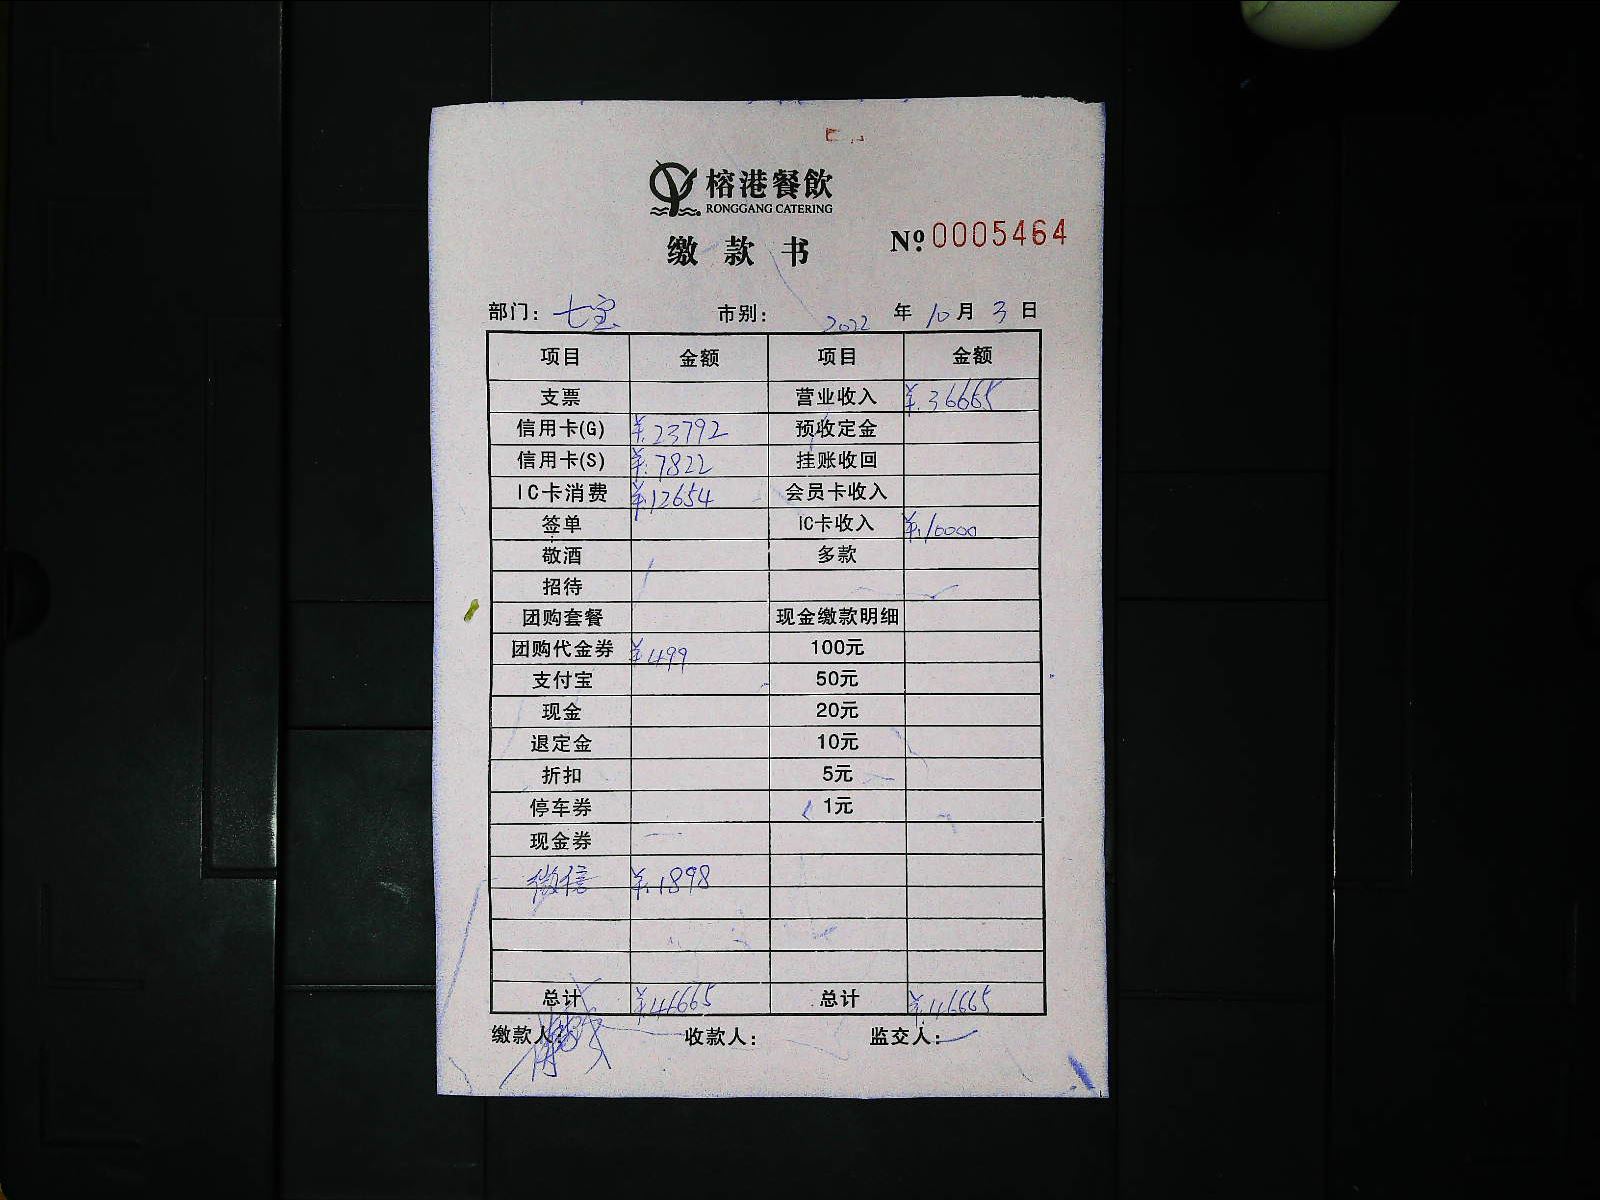 榕港餐飲
RONGGANG CATERING
缴款书 Nº 0005464
部门: 七宝 市别: 2022 年 10 月 3 日
项目 金额 项目 金额
支票 营业收入 ¥.36665
信用卡(G) ¥.23792 预收定金
信用卡(S) ¥.7822 挂账收回
IC卡消费 ¥.12654 会员卡收入
签单 IC卡收入 ¥.10000
敬酒 多款
招待
团购套餐 现金缴款明细
团购代金券 ¥499 100元
支付宝 50元
现金 20元
退定金 10元
折扣 5元
停车券 1元
现金券
微信 ¥.1898
总计 ¥46665 总计 ¥.46665
缴款人: 收款人: 监交人: